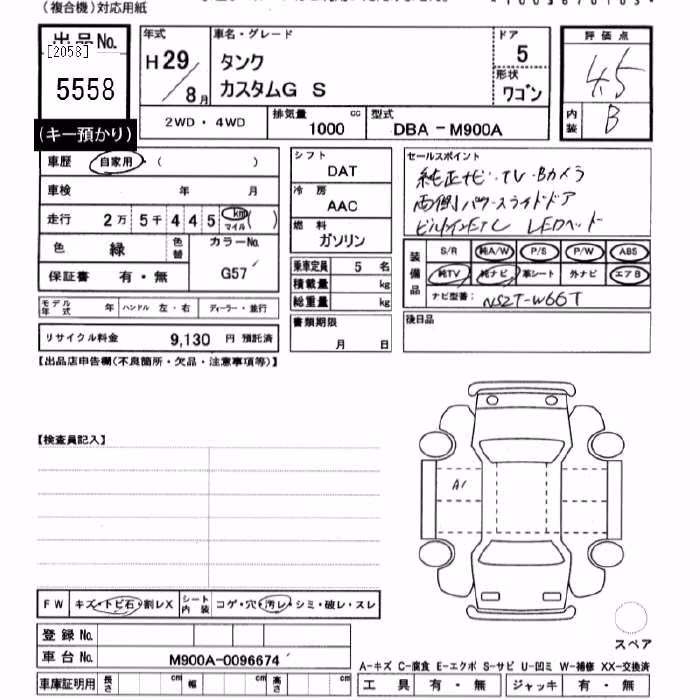 (複合機)対応用紙
出品No.
[2058]
5558
(キー預かり)
年式
H29/8月
車名・グレード
タンク
カスタムG S
ドア
5
形状
ワゴン
評価点
4.5
内装
B
2WD・4WD
排気量
1000 cc
型式
DBA-M900A
車歴 自家用・( )
車検 年 月
走行 2万5千445 km マイル ( )
色 緑 色替 カラーNo. G57
保証書 有・無
シフト
DAT
冷房
AAC
燃料
ガソリン
乗車定員 5名
積載量 kg
総重量 kg
書類期限
月 日
セールスポイント
純正ナビ・TV・Bカメラ
両側パワースライドドア
ビルトインETC LEDヘッド
装備品
S/R 純A/W P/S P/W ABS
純TV 純ナビ 革シート 外ナビ エアB
ナビ型番: NSZT-W66T
後日品
モデル年式 年 ハンドル 左・右 ディーラー・並行
リサイクル料金 9,130 円 預託済
【出品店申告欄(不良箇所・欠品・注意事項等)】
【検査員記入】
A1
スペア
FW キズ・トビ石・割レX シート内装 コゲ・穴・汚レ・シミ・破レ・スレ
登録No.
車台No. M900A-0096674
車庫証明用 長さ cm 幅 cm 高さ cm
A-キズ C-腐食 E-エクボ S-サビ U-凹ミ W-補修 XX-交換済
工具 有・無 ジャッキ 有・無